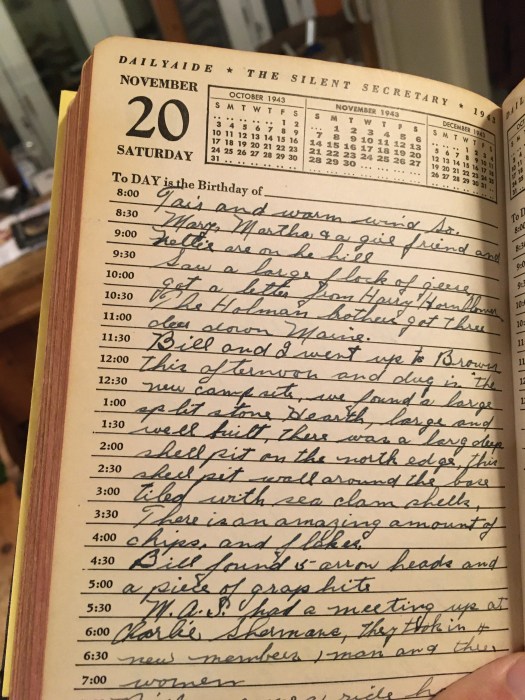 DAILYAIDE ★ THE SILENT SECRETARY ★ 1943
NOVEMBER
20
SATURDAY
OCTOBER 1943
S M T W T F S
.. .. .. .. .. 1 2
3 4 5 6 7 8 9
10 11 12 13 14 15 16
17 18 19 20 21 22 23
24 25 26 27 28 29 30
31 .. .. .. .. .. ..
NOVEMBER 1943
S M T W T F S
.. 1 2 3 4 5 6
7 8 9 10 11 12 13
14 15 16 17 18 19 20
21 22 23 24 25 26 27
28 29 30 .. .. .. ..
DECEMBER 1943
S M T W T F S
To DAY is the Birthday of
8:00 Fair and warm wind So.
8:30 Mary, Martha, & a girl friend and
9:00 Nellie are on he hill
9:30 Saw a large flock of geese
10:00 got a letter from Harry Hornblower
10:30 The Holman brothers got three
11:00 deer down Maine.
11:30 Bill and I went up to Browns
12:00 this afternoon and dug in the
12:30 new camp site, we found a large
1:00 split stone Hearth, large and
1:30 well built, there was a larg deep
2:00 shell pit on the north edge, this
2:30 shell pit wall around the base
3:00 tiled with sea clam shells,
3:30 There is an amazing amount of
4:00 chips, and flakes.
4:30 Bill found 5 arrow heads and
5:00 a piece of graphite
5:30 M.A.S. had a meeting up at
6:00 Charlie Shermans, they took in 4
6:30 new members, 1 man and three
7:00 women